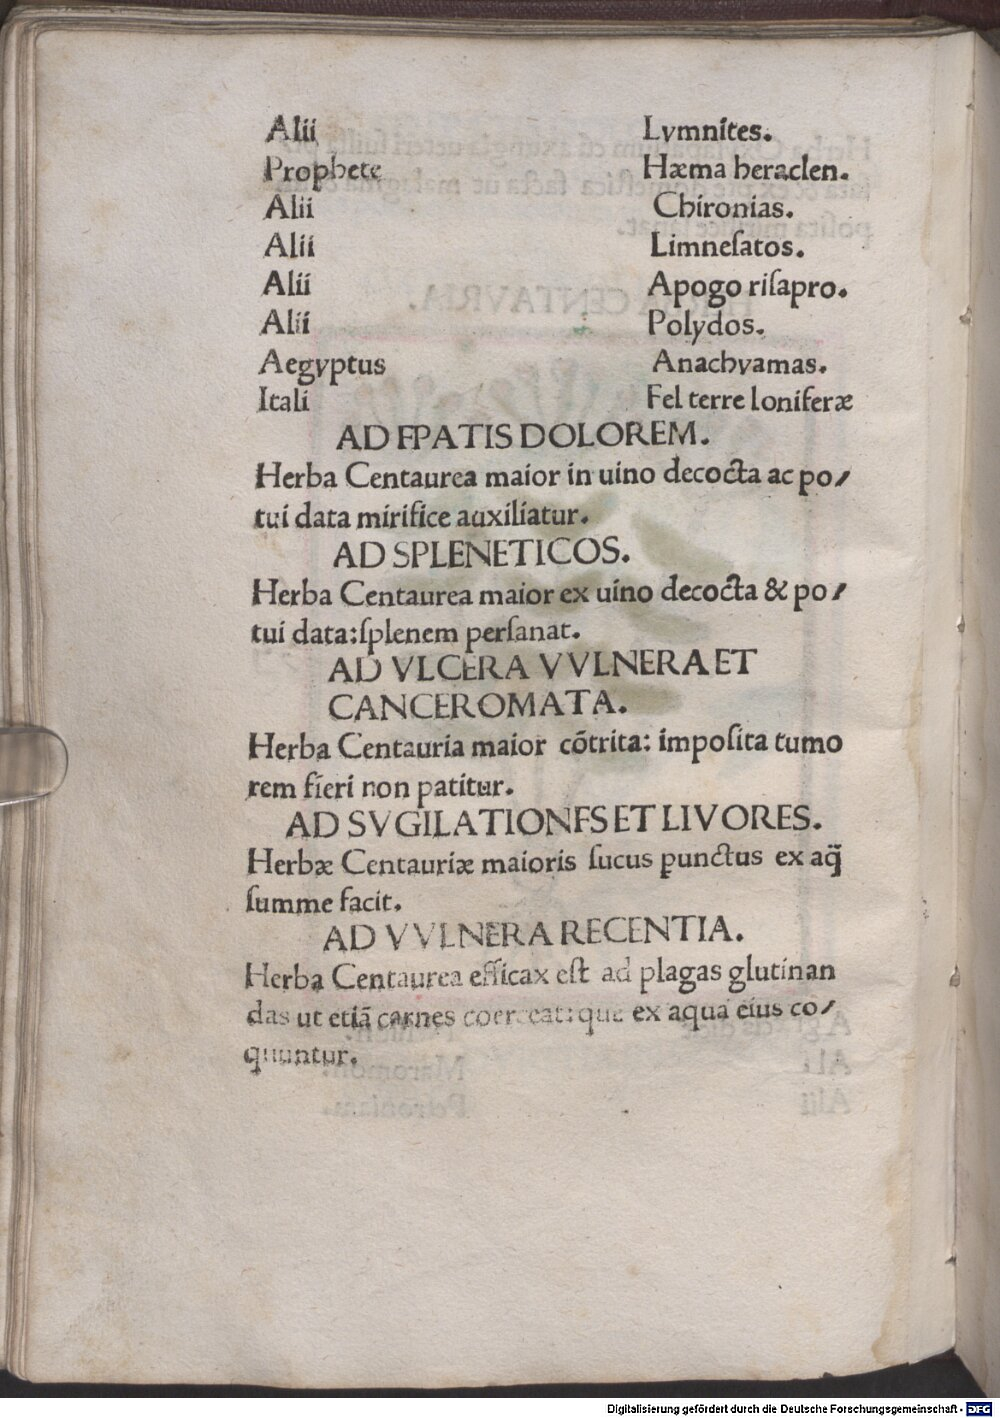 Alii Lymnites.
Prophete Hæma heraclen.
Alii Chironias.
Alii Limneſatos.
Alii Apogo riſapro.
Alii Polydos.
Aegyptus Anachyamas.
Itali Fel terre loniferæ
AD EPATIS DOLOREM.
Herba Centaurea maior in uino decocta ac po/
tui data mirifice auxiliatur.
AD SPLENETICOS.
Herba Centaurea maior ex uino decocta & po/
tui data:ſplenem perſanat.
AD VLCERA VVLNERA ET
CANCEROMATA.
Herba Centauria maior cōtrita: impoſita tumo
rem fieri non patitur.
AD SVGILATIONES ET LIVORES.
Herbæ Centauriæ maioris ſucus punctus ex aq̃
ſumme facit.
AD VVLNERA RECENTIA.
Herba Centaurea efficax eſt ad plagas glutinan
das ut etiã carnes coerceat:que ex aqua eius co/
quuntur.
Digitalisierung gefördert durch die Deutsche Forschungsgemeinschaft - DFG